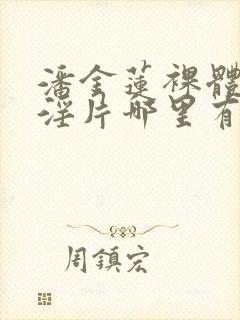 潘金蓮裸體
淫片哪里有
周鎮宏